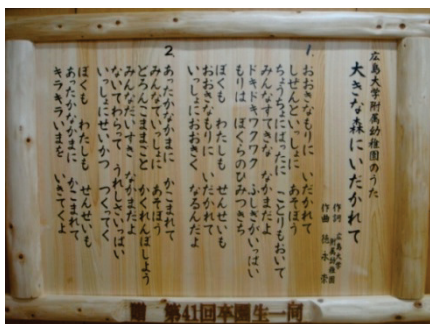 広島大学附属幼稚園のうた
大きな森にいだかれて
作詞 広島大学附属幼稚園
作曲 徳永崇
1.
おおきなもりに いだかれて
しぜんといっしょに あそぼう
ちょうちょにばったに ことりもおいで
みんなすてきな なかまだよ
ドキドキワクワク ふしぎがいっぱい
もりは ぼくらのひみつきち
ぼくも わたしも せんせいも
おおきなもりに いだかれて
いっしょにおおきく なるんだよ
2.
あったかなかまに かこまれて
みんなでいっしょに あそぼう
どろんこままごと かくれんぼしよう
みんなだいすき なかまだよ
ないてわらって うれしさいっぱい
いっしょにせいかつ つくってく
ぼくも わたしも せんせいも
あったかなかまに かこまれて
キラキラいまを いきてくよ
贈 第41回卒園生一同